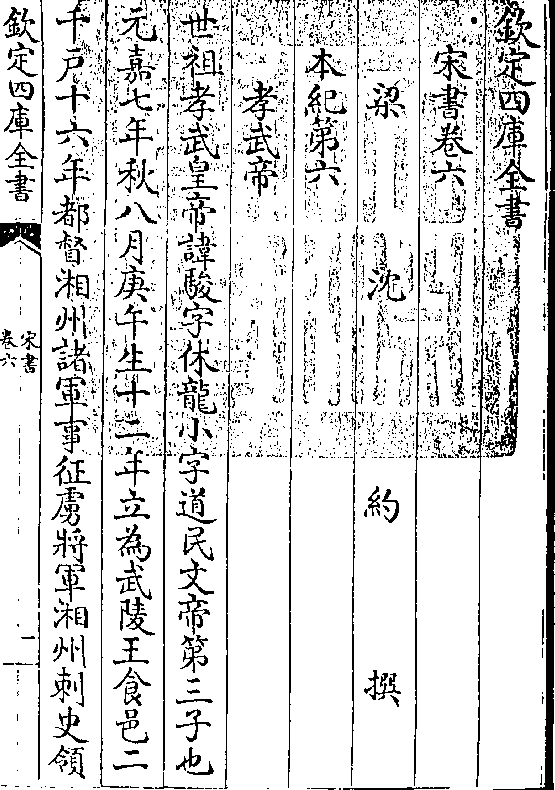 欽定四庫全書
宋書卷六
梁沈約撰
本紀第六
孝武帝
世祖孝武皇帝諱駿字休龍小字道民文帝第三子也
元嘉七年秋八月庚午生十二年立為武陵王食邑二
千戸十六年都督湘州諸軍事征虜將軍湘州刺史領
欽定四庫全書
宋書
卷六
一